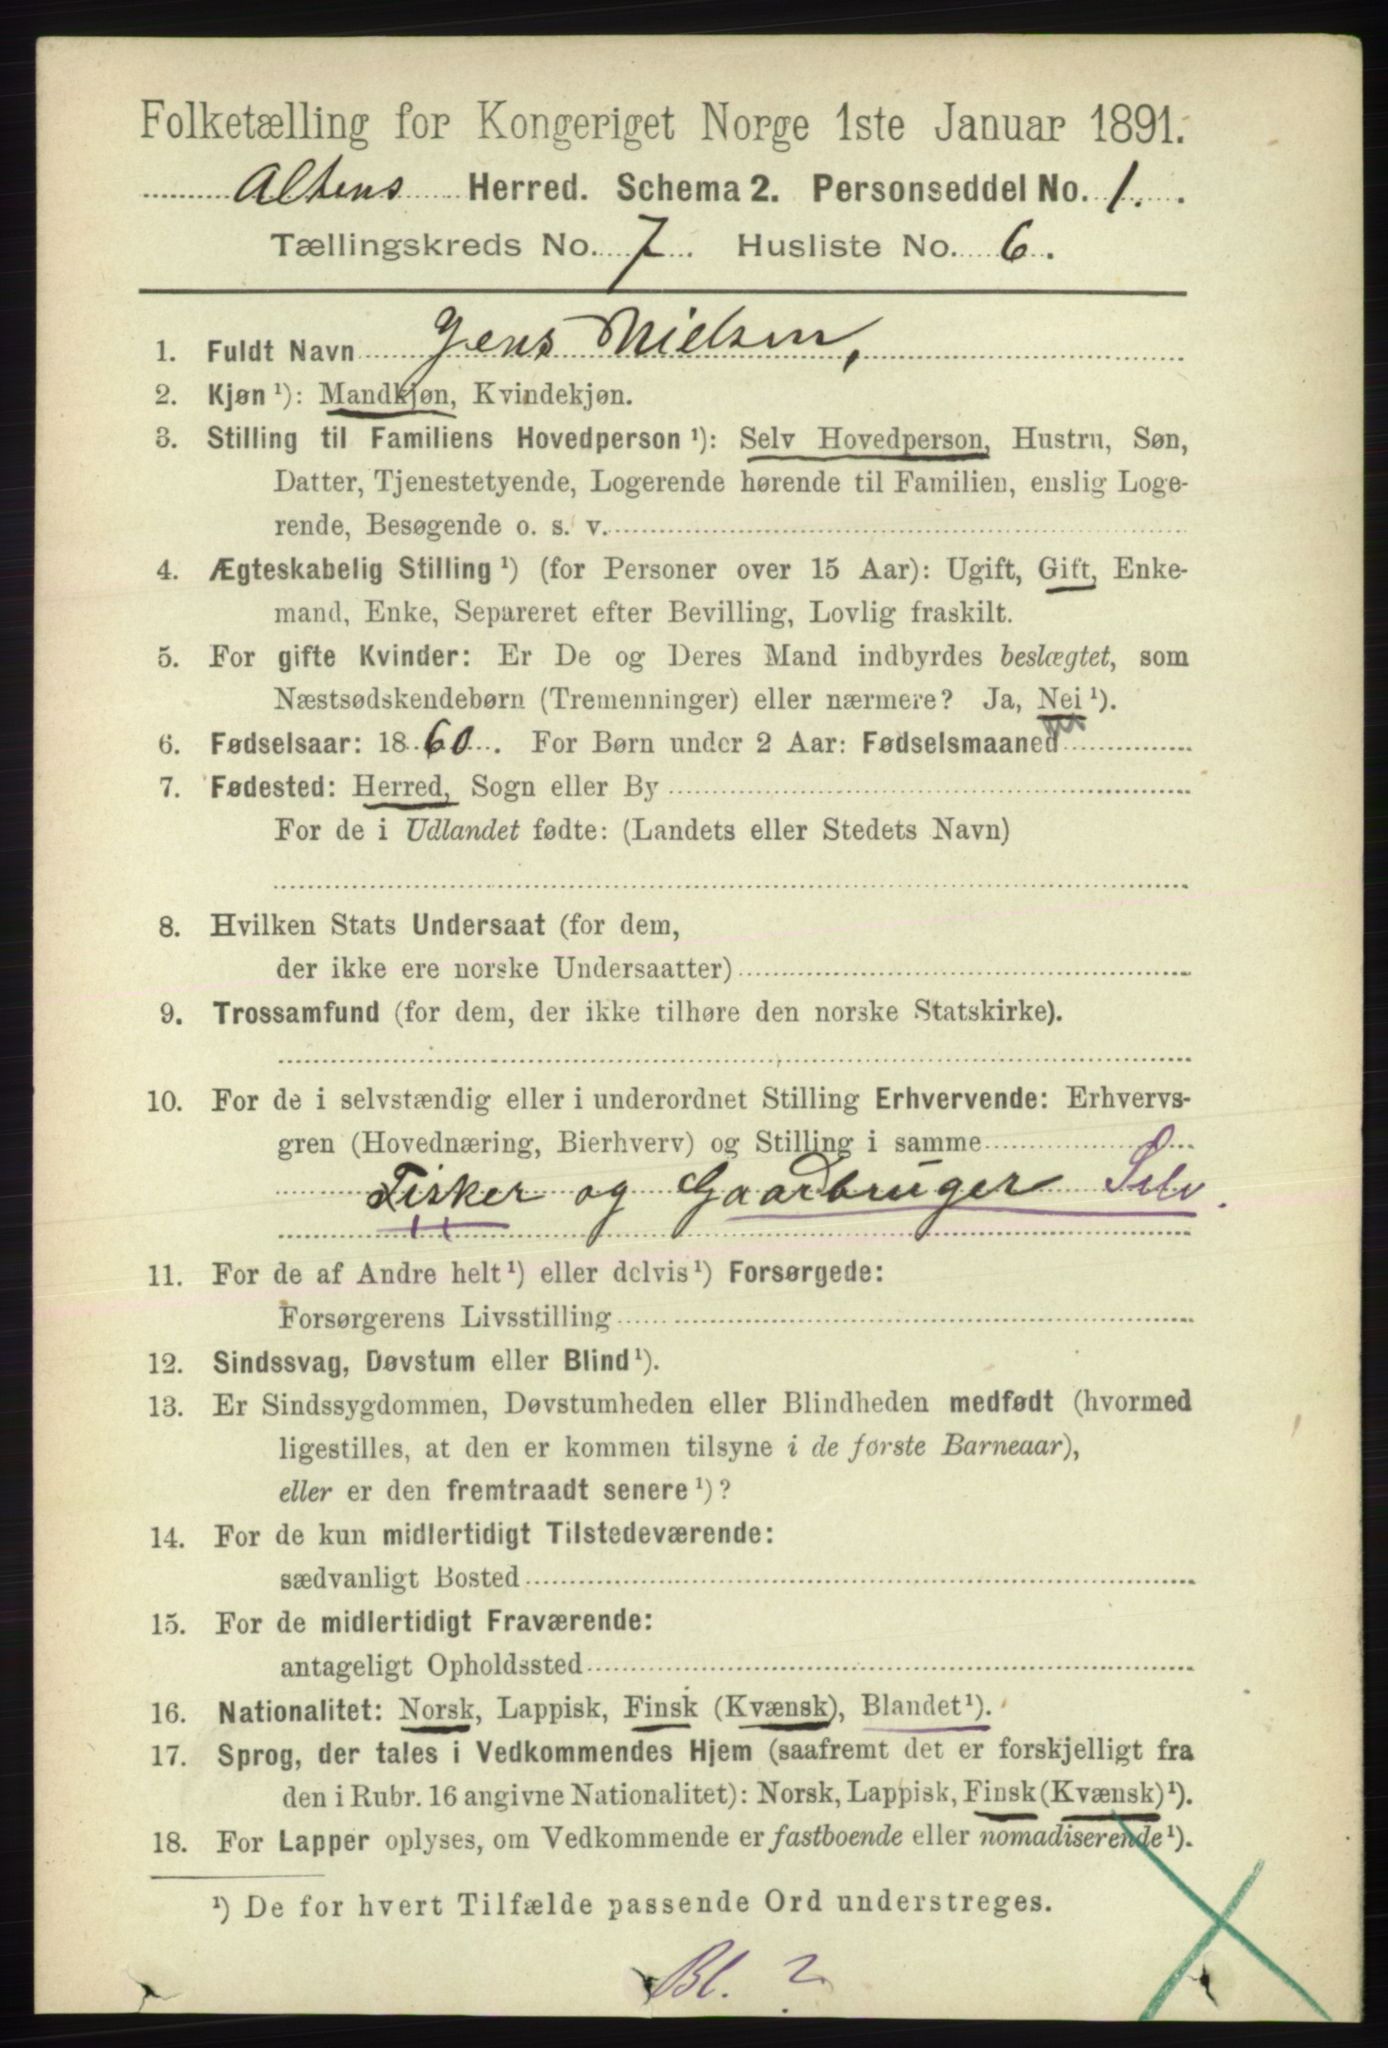 Folketælling for Kongeriget Norge 1ste Januar 1891.
Altens Herred. Schema 2. Personseddel No. 1.
Tællingskreds No. 7. Husliste No. 6.
1. Fuldt Navn Jens Nielsen,
2. Kjøn ¹): Mandkjøn, Kvindekjøn.
3. Stilling til Familiens Hovedperson ¹): Selv Hovedperson, Hustru, Søn,
Datter, Tjenestetyende, Logerende hørende til Familien, enslig Loge-
rende, Besøgende o. s. v.
4. Ægteskabelig Stilling ¹) (for Personer over 15 Aar): Ugift, Gift, Enke-
mand, Enke, Separeret efter Bevilling, Lovlig fraskilt.
5. For gifte Kvinder: Er De og Deres Mand indbyrdes beslægtet, som
Næstsødskendebørn (Tremenninger) eller nærmere? Ja, Nei ¹).
6. Fødselsaar: 1860. For Børn under 2 Aar: Fødselsmaaned
7. Fødested: Herred, Sogn eller By
For de i Udlandet fødte: (Landets eller Stedets Navn)
8. Hvilken Stats Undersaat (for dem,
der ikke ere norske Undersaatter)
9. Trossamfund (for dem, der ikke tilhøre den norske Statskirke).
10. For de i selvstændig eller i underordnet Stilling Erhvervende: Erhvervs-
gren (Hovednæring, Bierhverv) og Stilling i samme
Fisker og Gaardbruger Selv.
11. For de af Andre helt ¹) eller delvis ¹) Forsørgede:
Forsørgerens Livsstilling
12. Sindssvag, Døvstum eller Blind ¹).
13. Er Sindssygdommen, Døvstumheden eller Blindheden medfødt (hvormed
ligestilles, at den er kommen tilsyne i de første Barneaar),
eller er den fremtraadt senere ¹)?
14. For de kun midlertidigt Tilstedeværende:
sædvanligt Bosted
15. For de midlertidigt Fraværende:
antageligt Opholdssted
16. Nationalitet: Norsk, Lappisk, Finsk (Kvænsk), Blandet ¹).
17. Sprog, der tales i Vedkommendes Hjem (saafremt det er forskjelligt fra
den i Rubr. 16 angivne Nationalitet): Norsk, Lappisk, Finsk (Kvænsk) ¹).
18. For Lapper oplyses, om Vedkommende er fastboende eller nomadiserende ¹).
¹) De for hvert Tilfælde passende Ord understreges.
Bl. 2